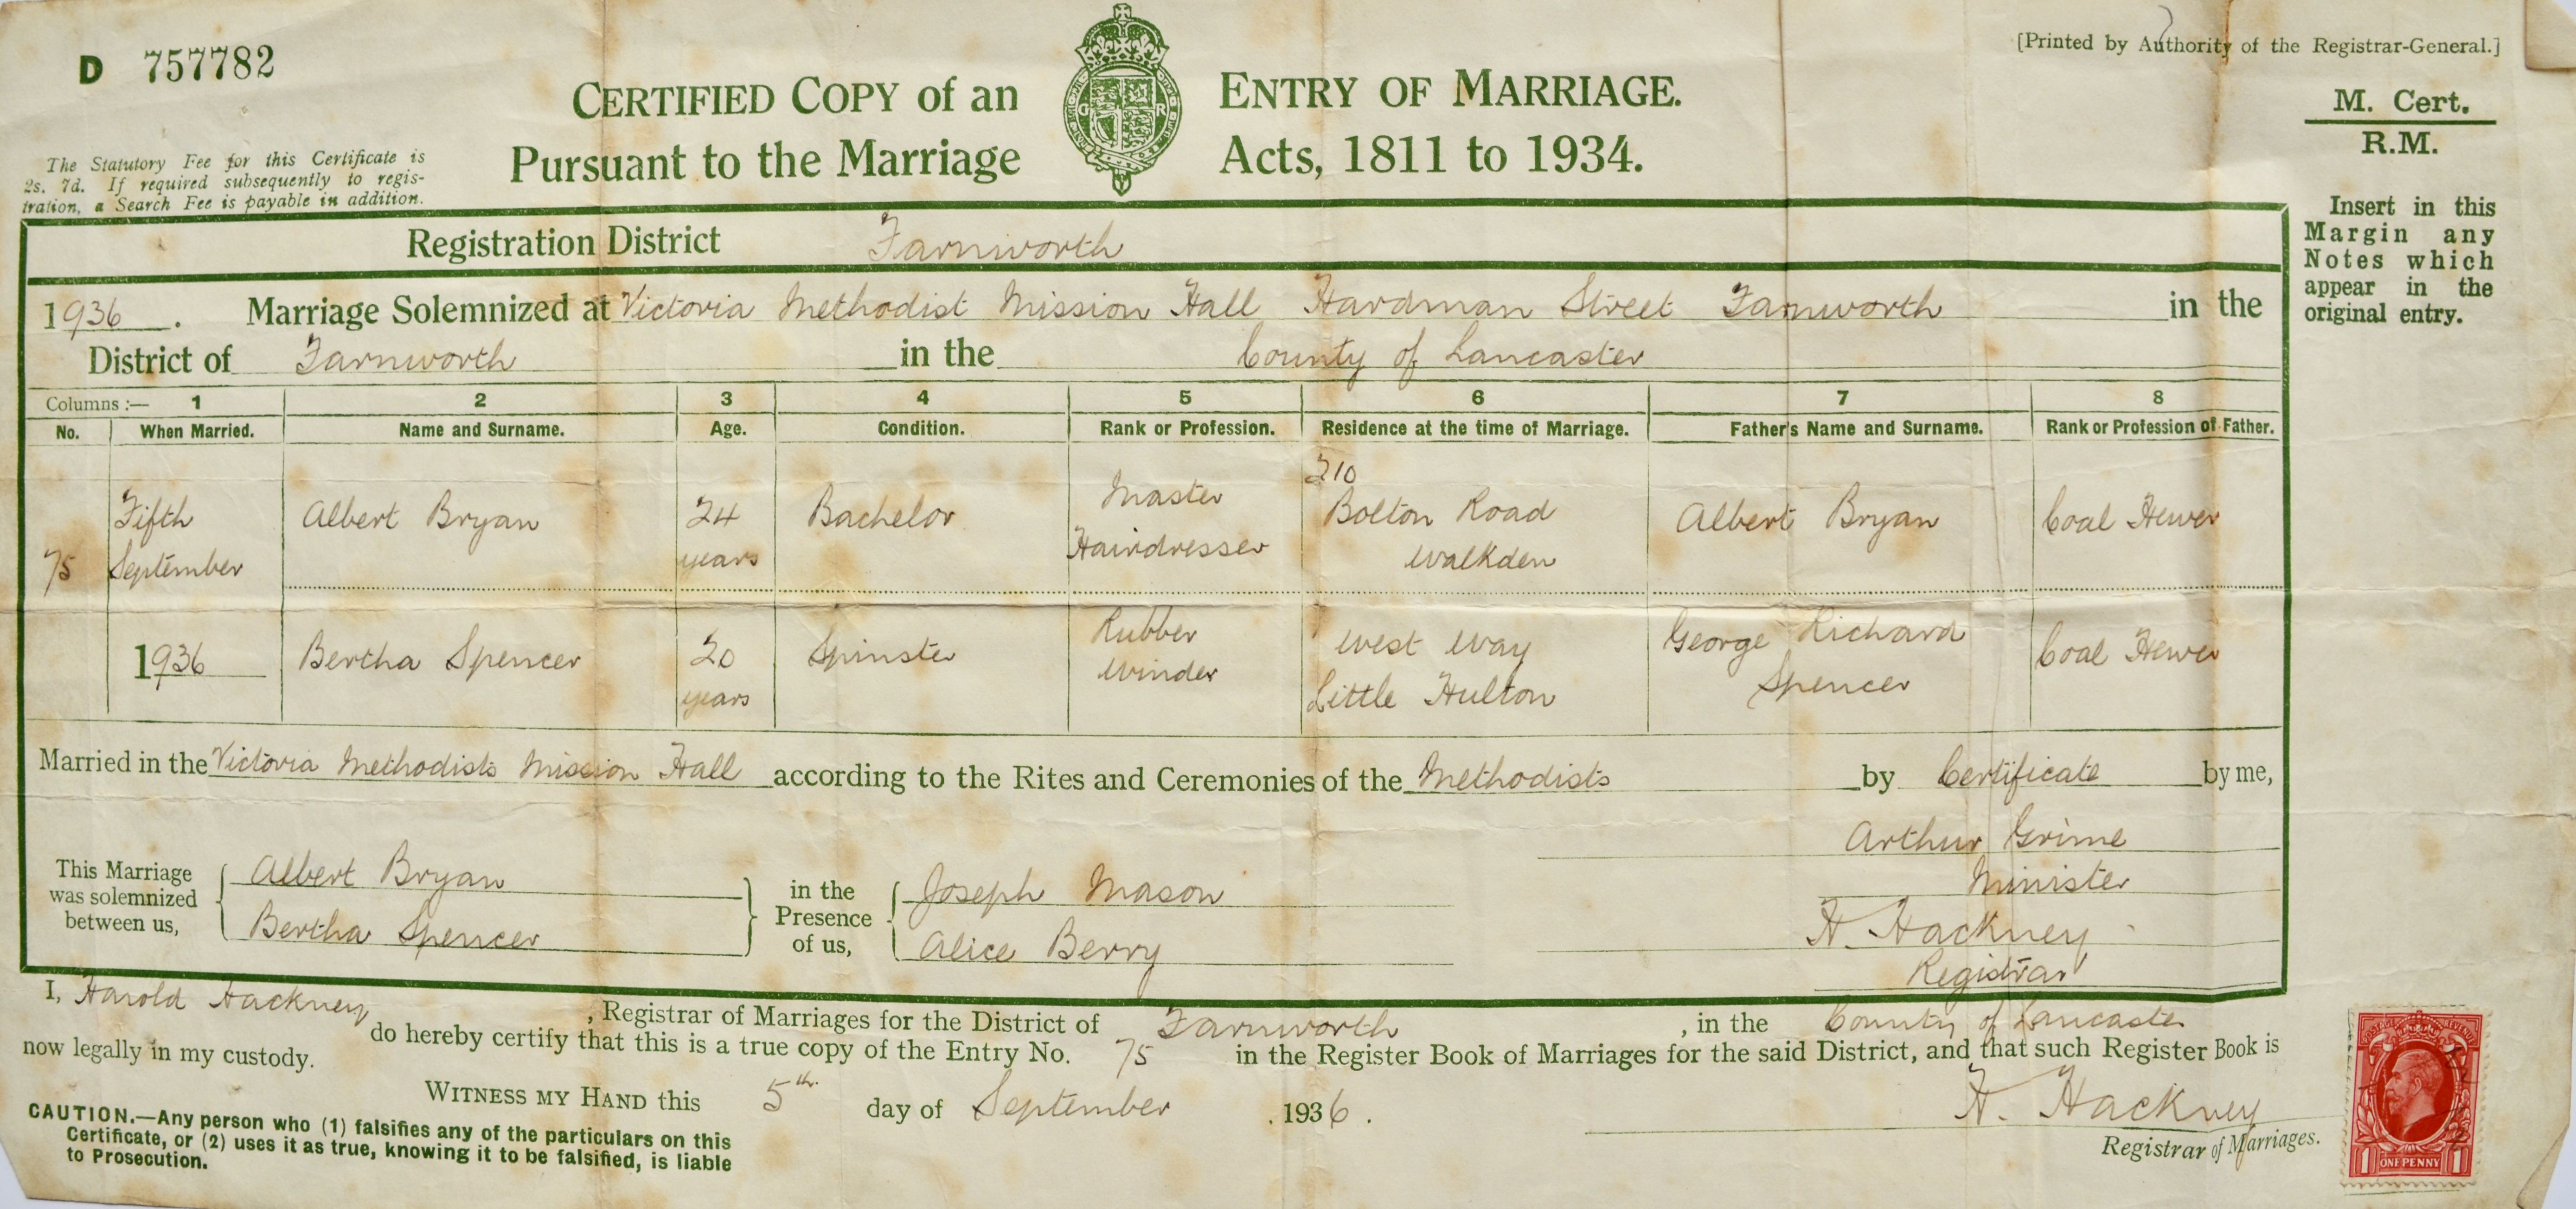 D 757782
[Printed by Authority of the Registrar-General.]
CERTIFIED COPY of an ENTRY OF MARRIAGE.
Pursuant to the Marriage Acts, 1811 to 1934.
G R
M. Cert.
R.M.
The Statutory Fee for this Certificate is
2s. 7d. If required subsequently to regis-
tration, a Search Fee is payable in addition.
Insert in this
Margin any
Notes which
appear in the
original entry.
Registration District Farnworth
1936. Marriage Solemnized at Victoria Methodist Mission Hall Hardman Street Farnworth in the
District of Farnworth in the County of Lancaster
Columns :— 1 2 3 4 5 6 7 8
No. When Married. Name and Surname. Age. Condition. Rank or Profession. Residence at the time of Marriage. Father's Name and Surname. Rank or Profession of Father.
75 Fifth September 1936
Albert Bryan 24 years Bachelor Master Hairdresser 210 Bolton Road Walkden Albert Bryan Coal Hewer
Bertha Spencer 20 years Spinster Rubber Winder West Way Little Hulton George Richard Spencer Coal Hewer
Married in the Victoria Methodists Mission Hall according to the Rites and Ceremonies of the Methodists by Certificate by me,
Arthur Grime
Minister
H. Hackney
Registrar
This Marriage
was solemnized
between us,
Albert Bryan
Bertha Spencer
in the
Presence
of us,
Joseph Mason
Alice Berry
I, Harold Hackney, Registrar of Marriages for the District of Farnworth, in the County of Lancaster
do hereby certify that this is a true copy of the Entry No. 75 in the Register Book of Marriages for the said District, and that such Register Book is
now legally in my custody.
WITNESS MY HAND this 5th day of September 1936.
H. Hackney
Registrar of Marriages.
CAUTION.—Any person who (1) falsifies any of the particulars on this
Certificate, or (2) uses it as true, knowing it to be falsified, is liable
to Prosecution.
POSTAGE REVENUE
1 ONE PENNY 1